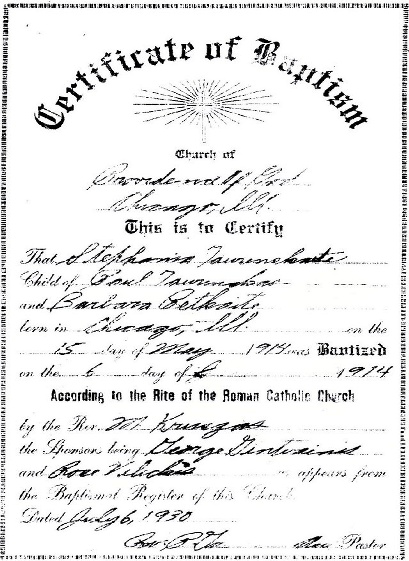 Certificate of Baptism
Church of
Providence of God
Chicago, Ill.
This is to Certify
That Stephania
Child of Paul
and Barbara
born in Chicago, Ill. on the
15 day of May 1914 was Baptized
on the 6 day of 1914
According to the Rite of the Roman Catholic Church
by the Rev. M. Kruszas
the Sponsors being George
and Rose as appears from
the Baptismal Register of this Church
Dated July 6, 1930
Pastor